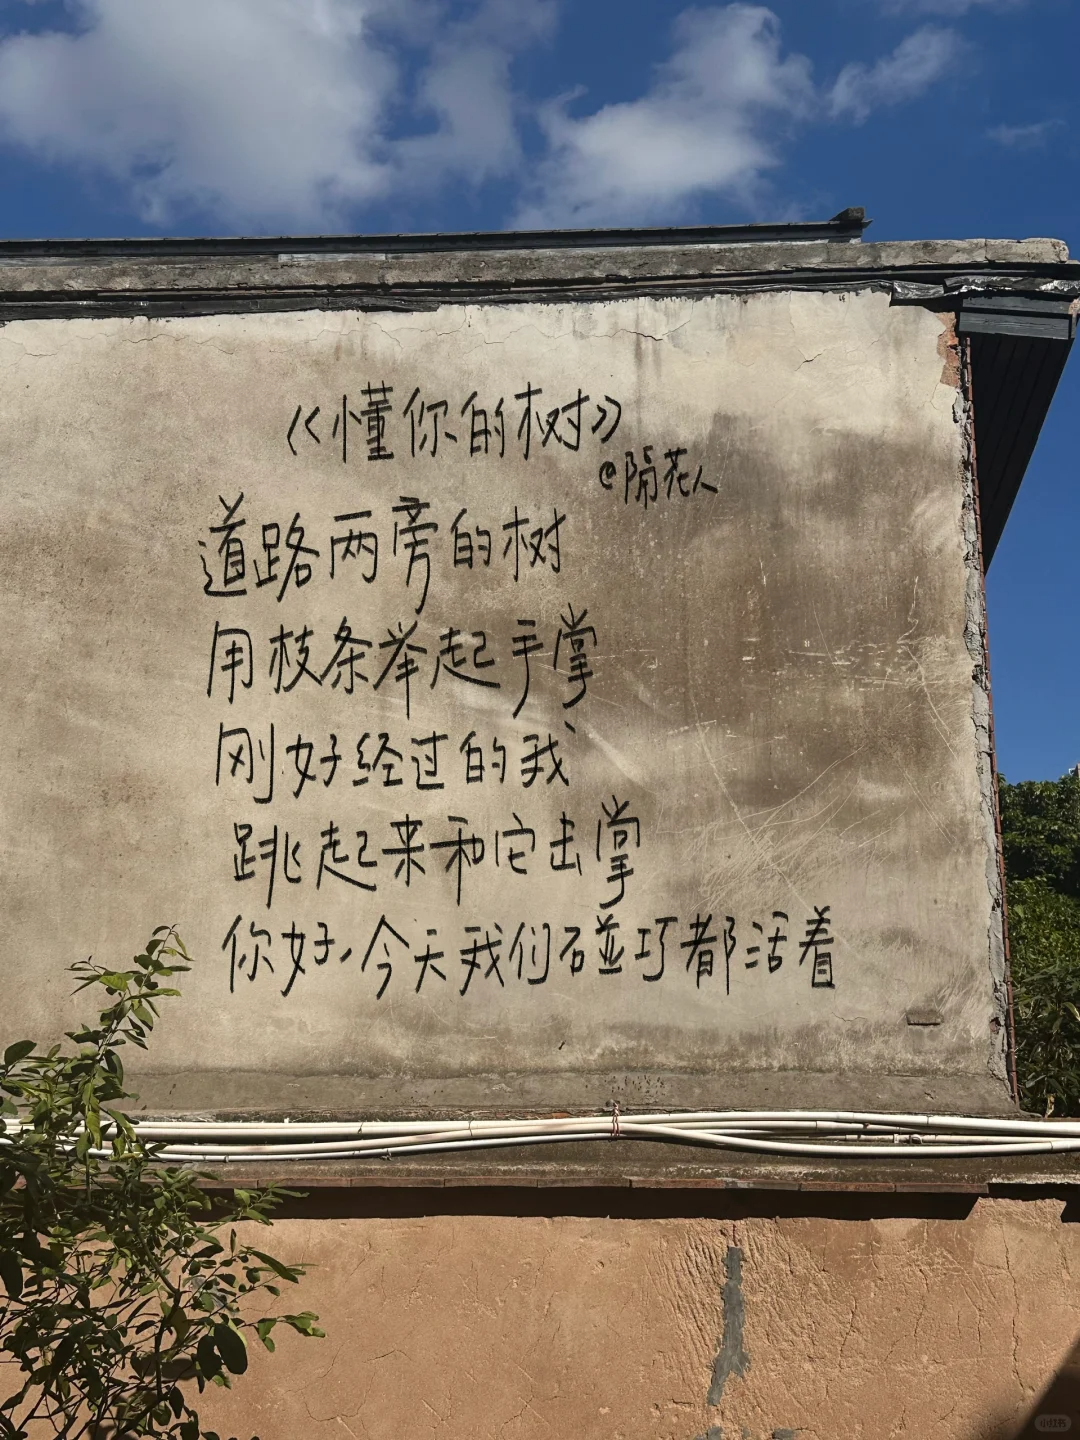 《懂你的树》
@陨花人
道路两旁的树
用枝条举起手掌
刚好经过的我
跳起来和它击掌
你好,今天我们碰巧都活着
小红书